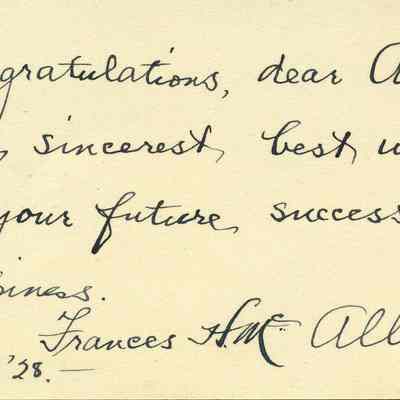 gratulations, dear A
, sincerest, best w
your future success
piness.
Frances H. Mc. All
'28.—